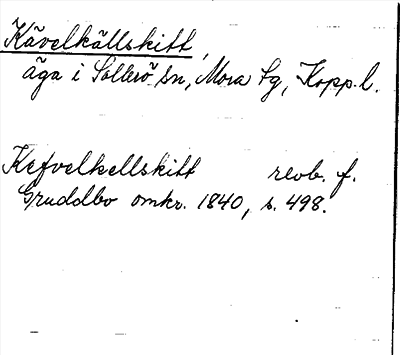 Kävelkällskitt,
äga i Sollerö sn, Mora tg, Kopp. l.
Kefvelkellskitt revb. f.
Gruddbo omkr. 1840, s. 498.